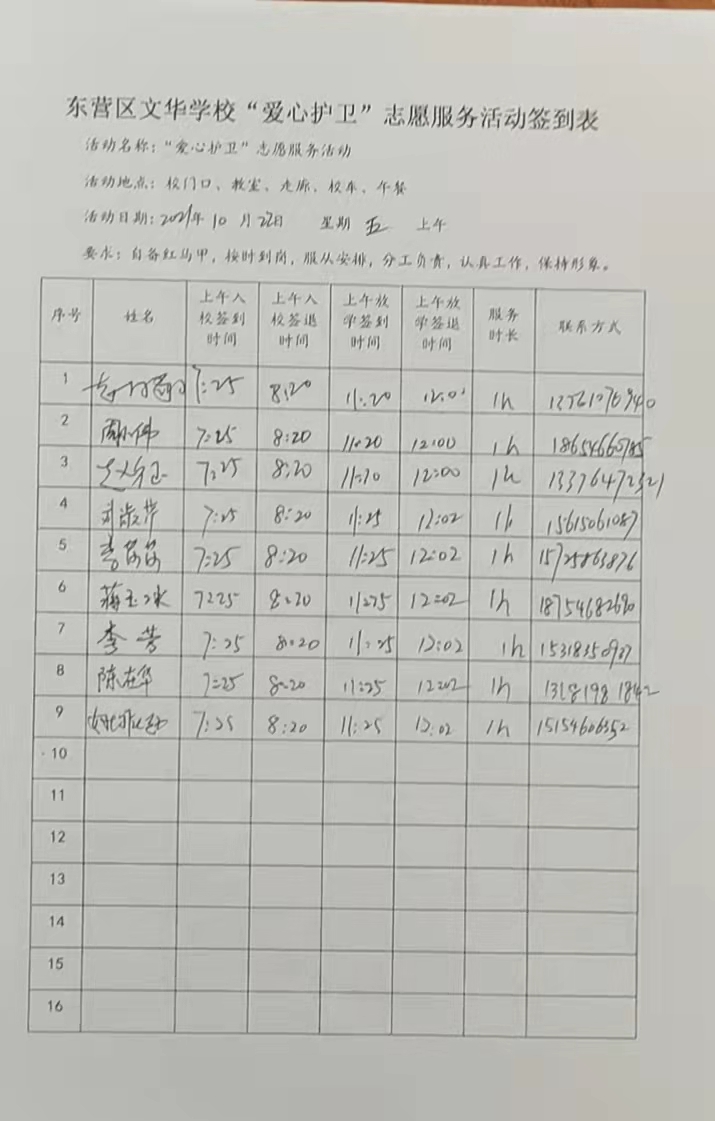 东营区文华学校“爱心护卫”志愿服务活动签到表
活动名称：“爱心护卫”志愿服务活动
活动地点：校门口、教室、走廊、校车、午餐
活动日期：2021年10月22日 星期 五 上午
要求：自备红马甲，按时到岗，服从安排，分工负责，认真工作，保持形象。
序号 姓名 上午入校签到时间 上午入校签退时间 上午放学签到时间 上午放学签退时间 服务时长 联系方式
1 7:25 8:20 11:20 12:01 1h
2 7:25 8:20 11:20 12:00 1h 18654660785
3 7:25 8:20 11:20 12:00 1h 13376472321
4 7:25 8:20 11:25 12:02 1h 15615061087
5 李茵茵 7:25 8:20 11:25 12:02 1h 15725863876
6 蒋玉冰 7:25 8:20 11:25 12:02 1h 18754682690
7 李芳 7:25 8:20 11:25 12:02 1h 15318350987
8 陈在华 7:25 8:20 11:25 12:02 1h 13181981842
9 7:25 8:20 11:25 12:02 1h 15154606352
10
11
12
13
14
15
16